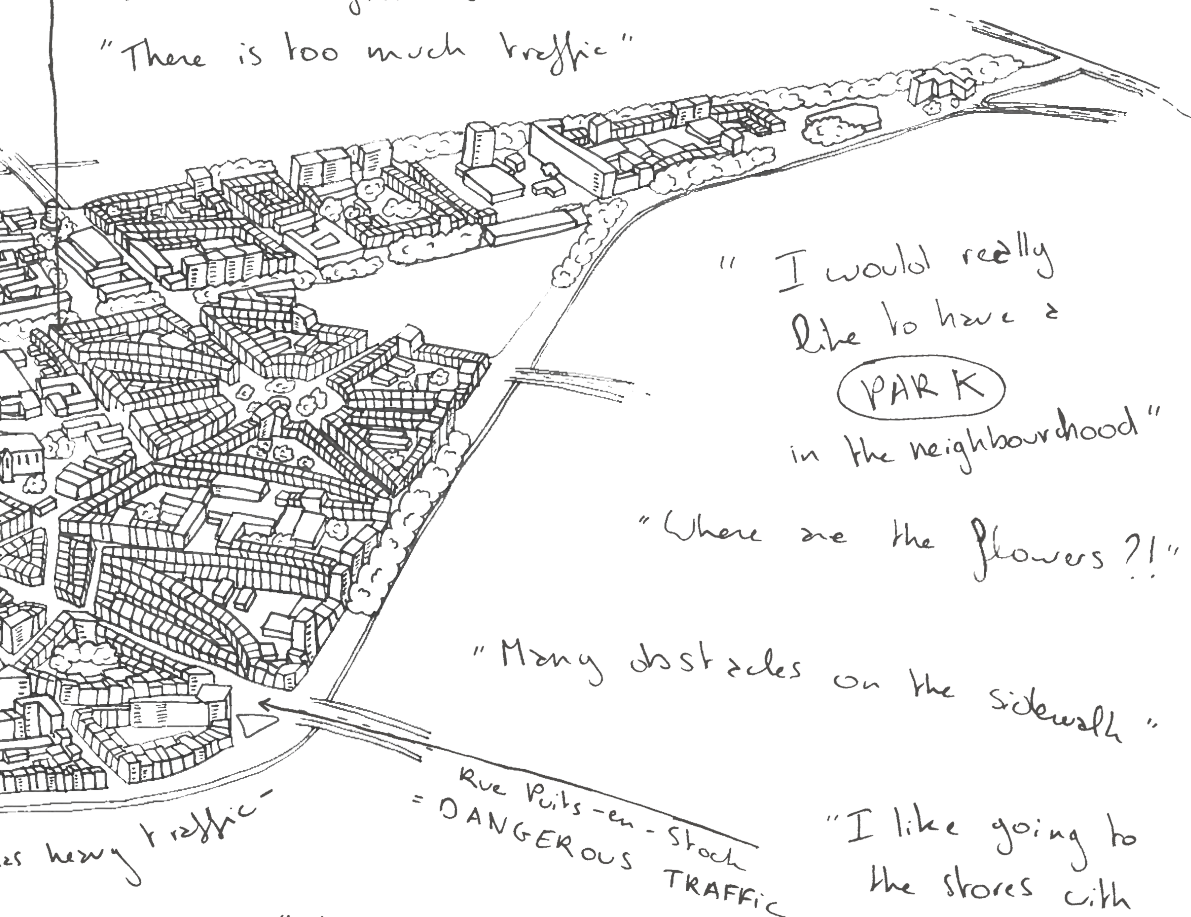 "There is too much traffic"
"I would really
like to have a
PARK
in the neighbourdhood"
"Where are the flowers ?!"
"Many obstacles on the sidewalk"
Rue Puits-en-Stock
= DANGEROUS TRAFFIC
heavy traffic-
"I like going to
the stores with